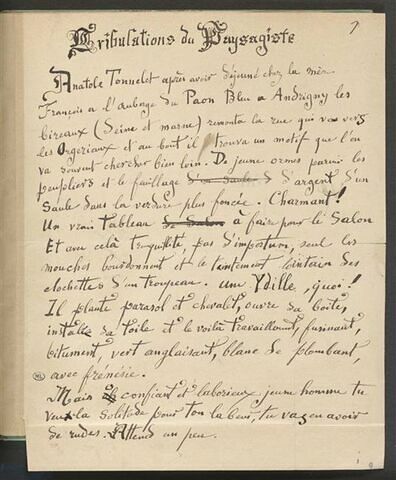 Tribulations du Paysagiste
7
Anatole Tonnelet après avoir déjeuné chez la mère
François a l'auberge du Paon Bleu a Andrigny les
Gireaux (Seine et marne) remonta la rue qui va vers
les Orgeriaux et au bout il trouva un motif que l'on
va souvent chercher bien loin. De jeune ormes parmi les
peupliers et le feuillage d'un saule d'argent d'un
Saule dans la verdure plus foncée. Charmant!
Un vrai tableau de Salon à faire pour le Salon
Et avec celà tranquillité, pas d'importun, seul les
mouches bourdonnent et le tintement lointain des
clochettes d'un troupeau. une Ydille, quoi!
Il plante parasol et chevalet, ouvre sa boîte,
installe sa toile et le voilà travaillant,
bitument, vert anglaisant, blanc de plombant,
avec frénésie.
Mais confiant et laborieux jeune homme tu
veux la solitude pour ton labeur, tu vas en avoir
de rudes. Attend un peu.